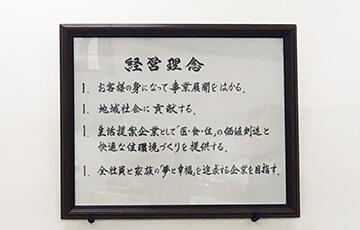 経営理念
1. お客様の身になって事業展開をはかる。
1. 地域社会に貢献する。
1. 生活提案企業として「医・食・住」の価値創造と
快適な住環境づくりを提供する。
1. 全社員と家族の「夢と幸福」を追求する企業を目指す。